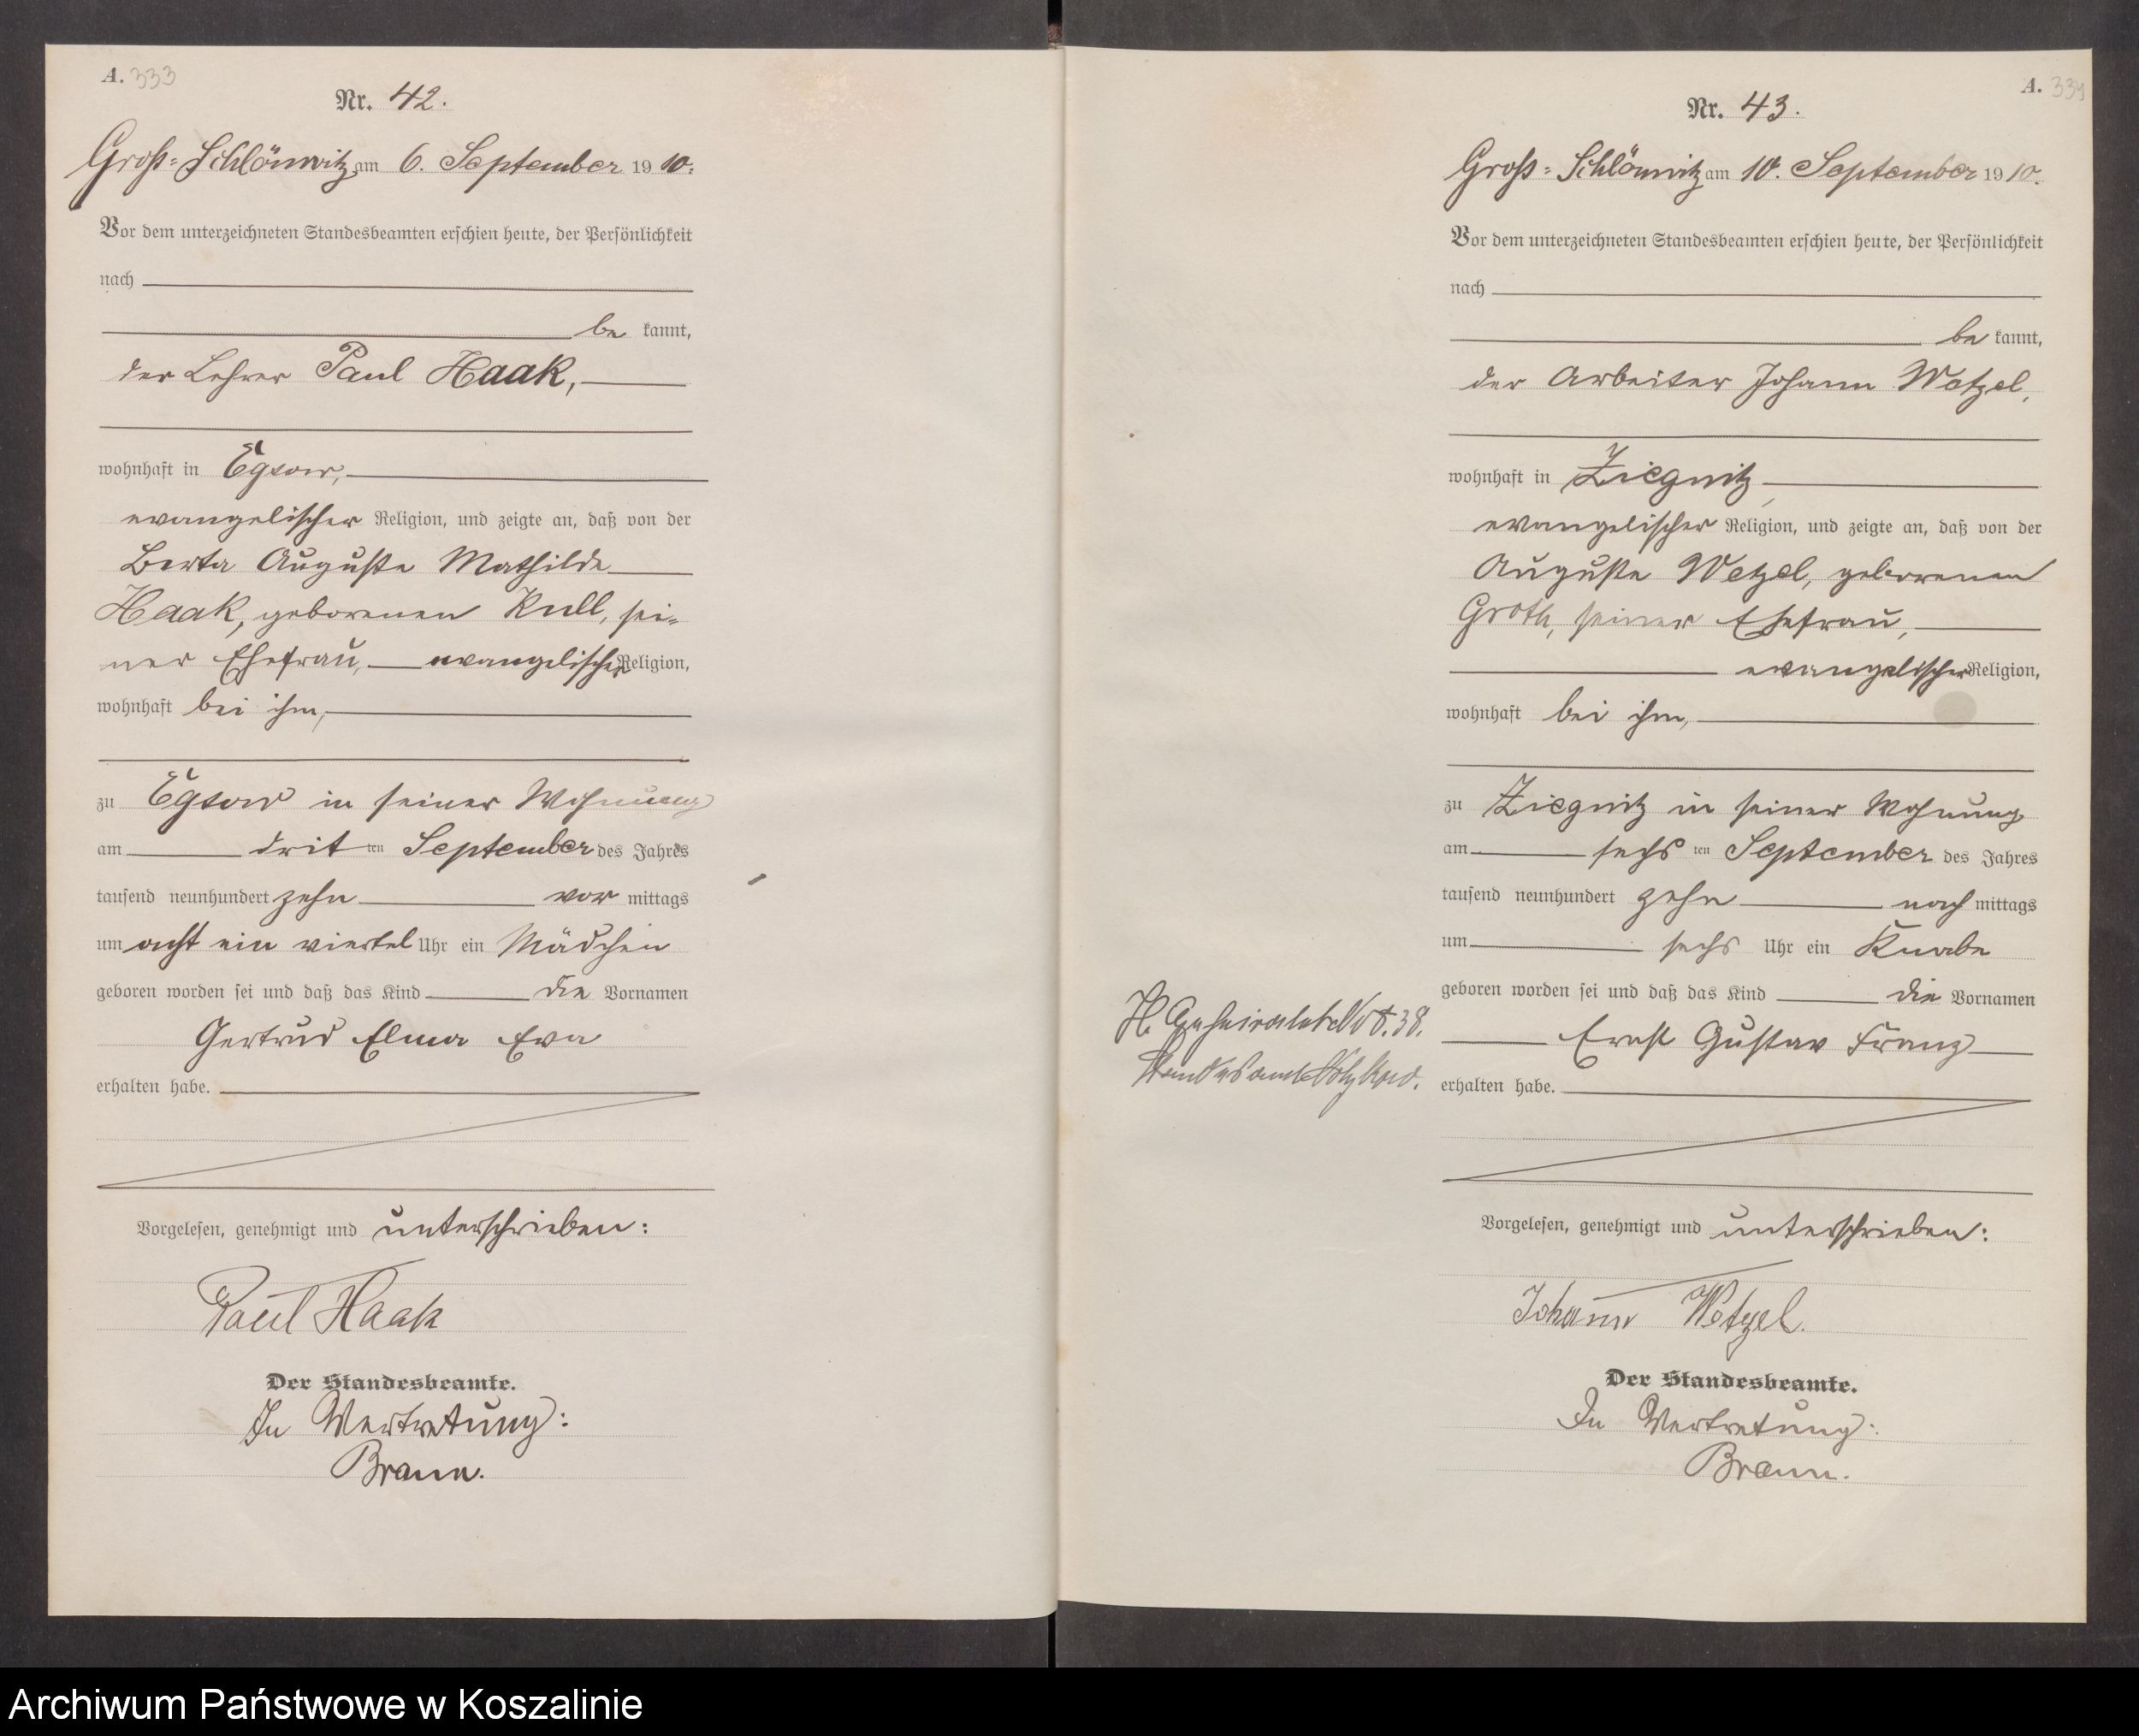 A. 333
Nr. 42.
Groß-Schlönwitz am 6. September 1910.
Vor dem unterzeichneten Standesbeamten erschien heute, der Persönlichkeit
nach
be kannt,
der Lehrer Paul Haak,
wohnhaft in Egsow,
evangelischer Religion, und zeigte an, daß von der
Berta Auguste Mathilde
Haak, geborenen Kull, sei-
ner Ehefrau, evangelischer Religion,
wohnhaft bei ihm,
zu Egsow in seiner Wohnung
am dritten September des Jahres
tausend neunhundert zehn vor mittags
um acht ein viertel Uhr ein Mädchen
geboren worden sei und daß das Kind die Vornamen
Gertrud Elma Eva
erhalten habe.
Vorgelesen, genehmigt und unterschrieben:
Paul Haak
Der Standesbeamte.
In Vertretung:
Braun.
A. 334
Nr. 43.
Groß-Schlönwitz am 10. September 1910.
Vor dem unterzeichneten Standesbeamten erschien heute, der Persönlichkeit
nach
be kannt,
der Arbeiter Johann Wetzel,
wohnhaft in Ziegnitz,
evangelischer Religion, und zeigte an, daß von der
Auguste Wetzel, geborenen
Groth, seiner Ehefrau,
evangelischer Religion,
wohnhaft bei ihm,
zu Ziegnitz in seiner Wohnung
am sechsten September des Jahres
tausend neunhundert zehn nach mittags
um sechs Uhr ein Knabe
geboren worden sei und daß das Kind die Vornamen
Ernst Gustav Franz
erhalten habe.
Vorgelesen, genehmigt und unterschrieben:
Johann Wetzel.
Der Standesbeamte.
In Vertretung:
Braun.
H. Geheiratet 38.
Standesamt
Archiwum Państwowe w Koszalinie